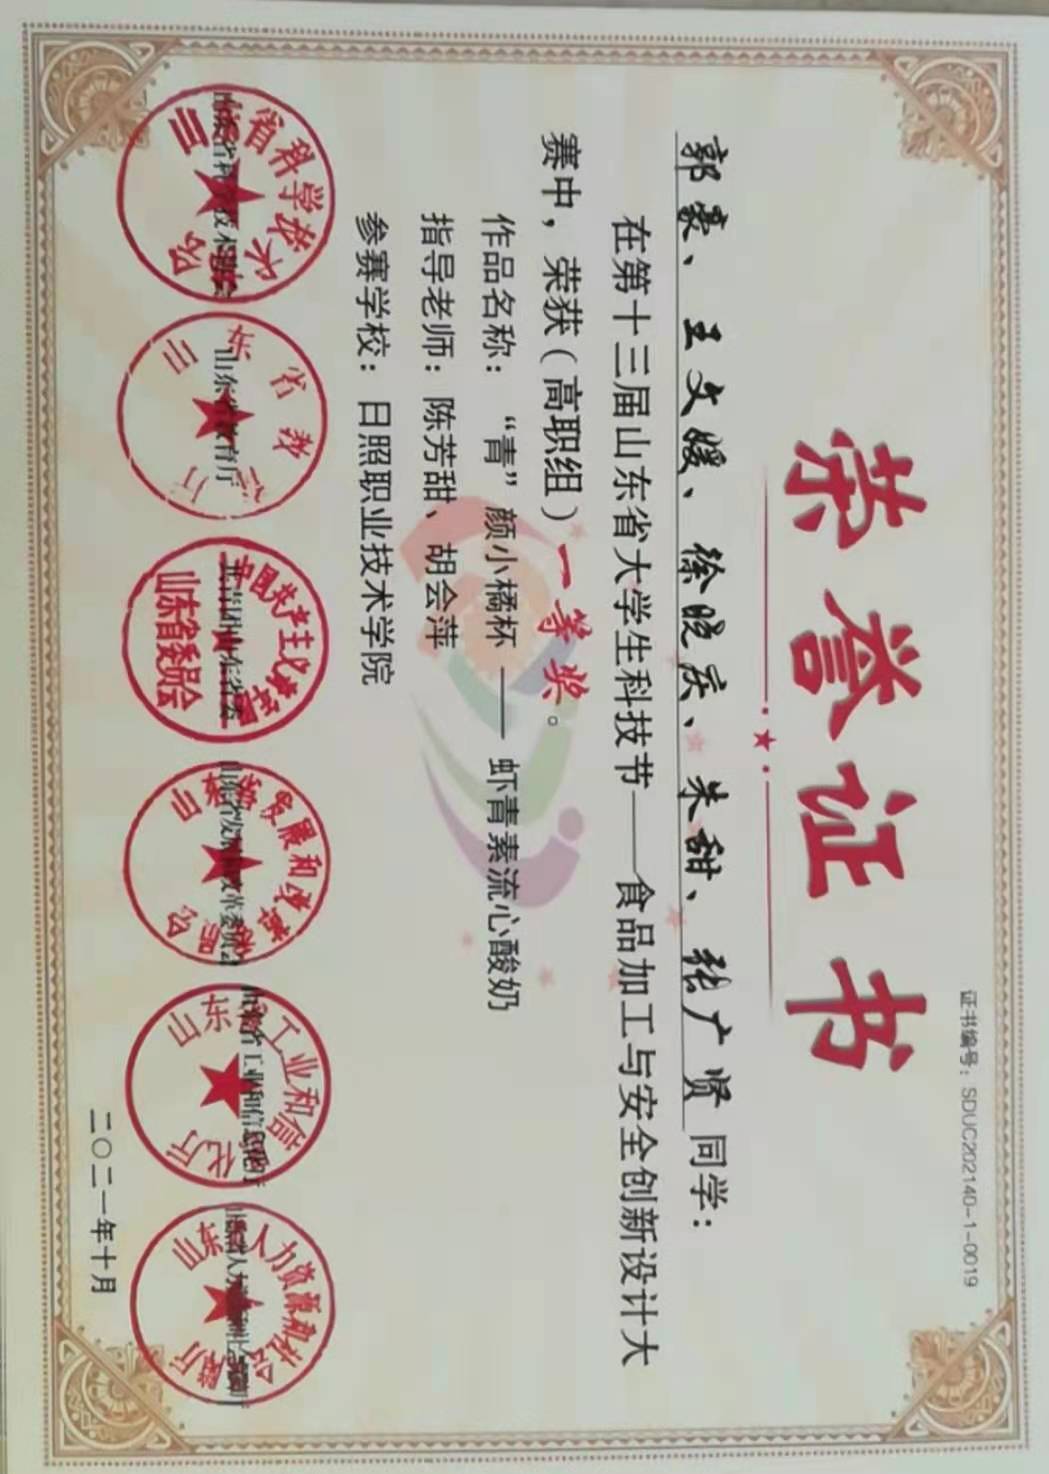 证书编号：SDUC202140-1-0019
荣誉证书
郭豪、王文媛、徐晓庆、朱甜、张广贤同学：
在第十三届山东省大学生科技节——食品加工与安全创新设计大
赛中，荣获（高职组）一等奖。
作品名称：“青”颜小橘杯——虾青素流心酸奶
指导老师：陈芳甜、胡会萍
参赛学校：日照职业技术学院
山东省科学技术协会
山东省科学技术协会
山东省教育厅
山东省教育厅
中国共产主义青年团
共青团山东省委
山东省委员会
山东省发展和改革委员会
山东省发展和改革委员会
山东省工业和信息化厅
山东省工业和信息化厅
山东省人力资源和社会保障厅
山东省人力资源和社会保障厅
二〇二一年十月